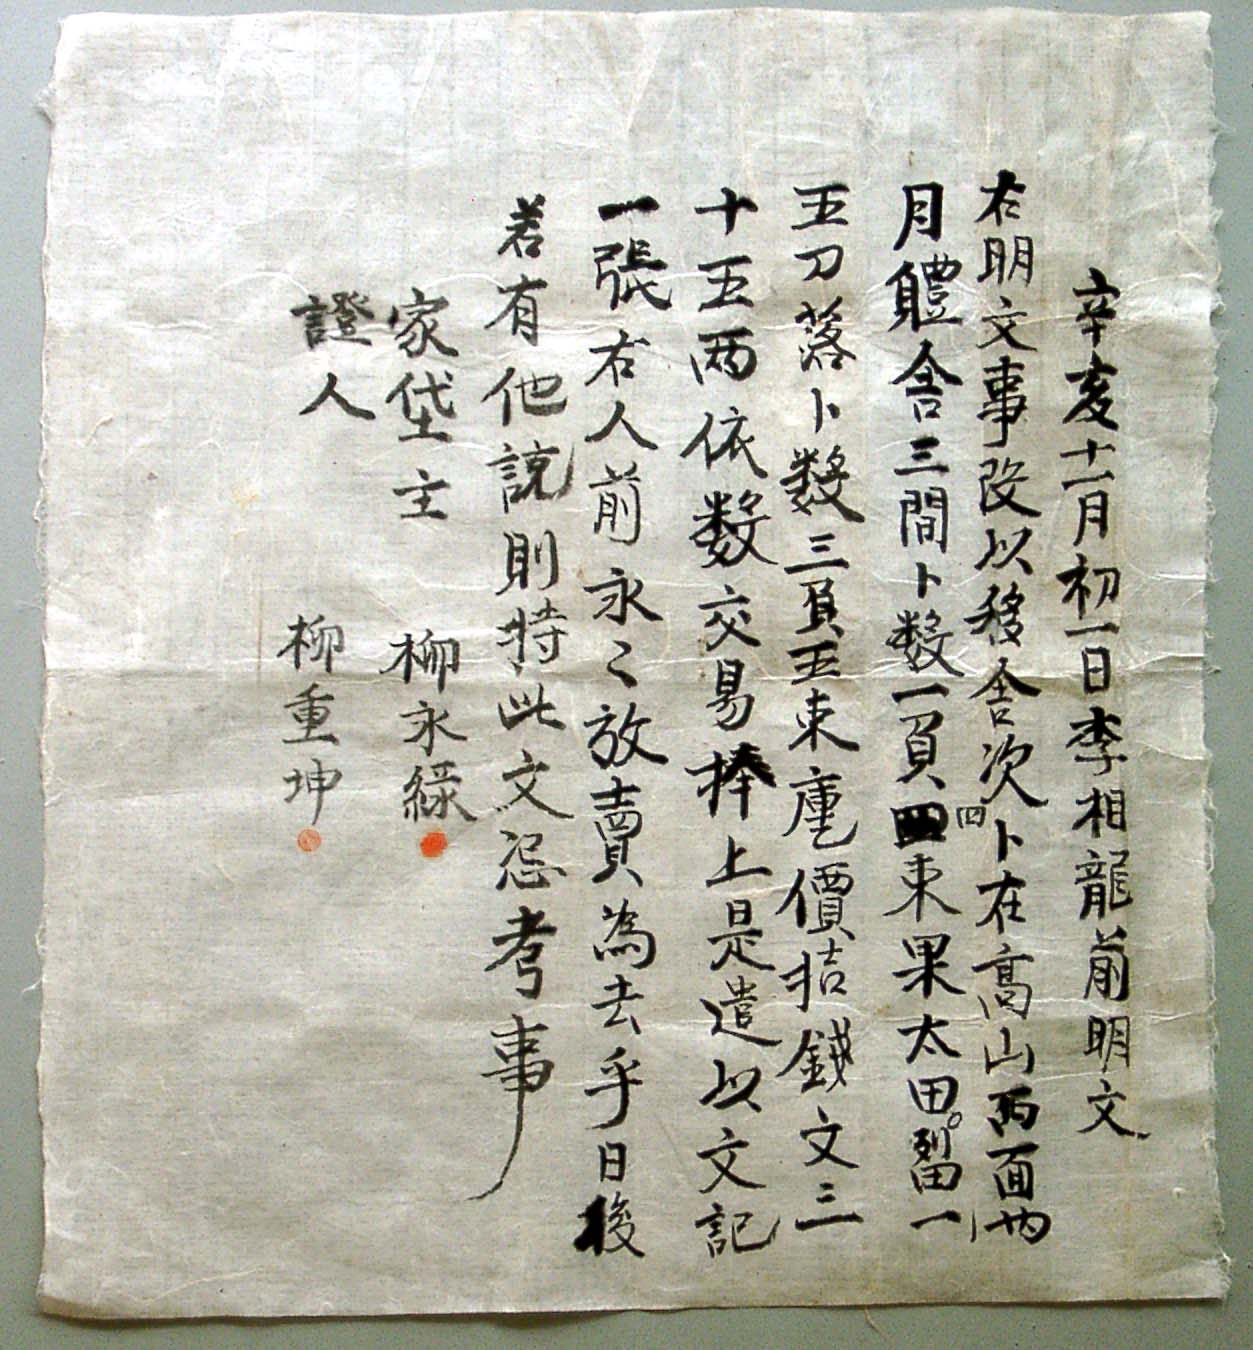 辛亥十一月初一日李相龍前明文
右明文事段以移舍次卜在高山西面內
月軆舍三間卜数一負四束果太田畓一
五刀落卜数三負五束庫價折錢文三
十五兩依数交易捧上是遣以文記
一張右人前永〻放賣為去乎日後
若有他說則持此文憑考事
家垈主 柳永綠
證人 柳重坤